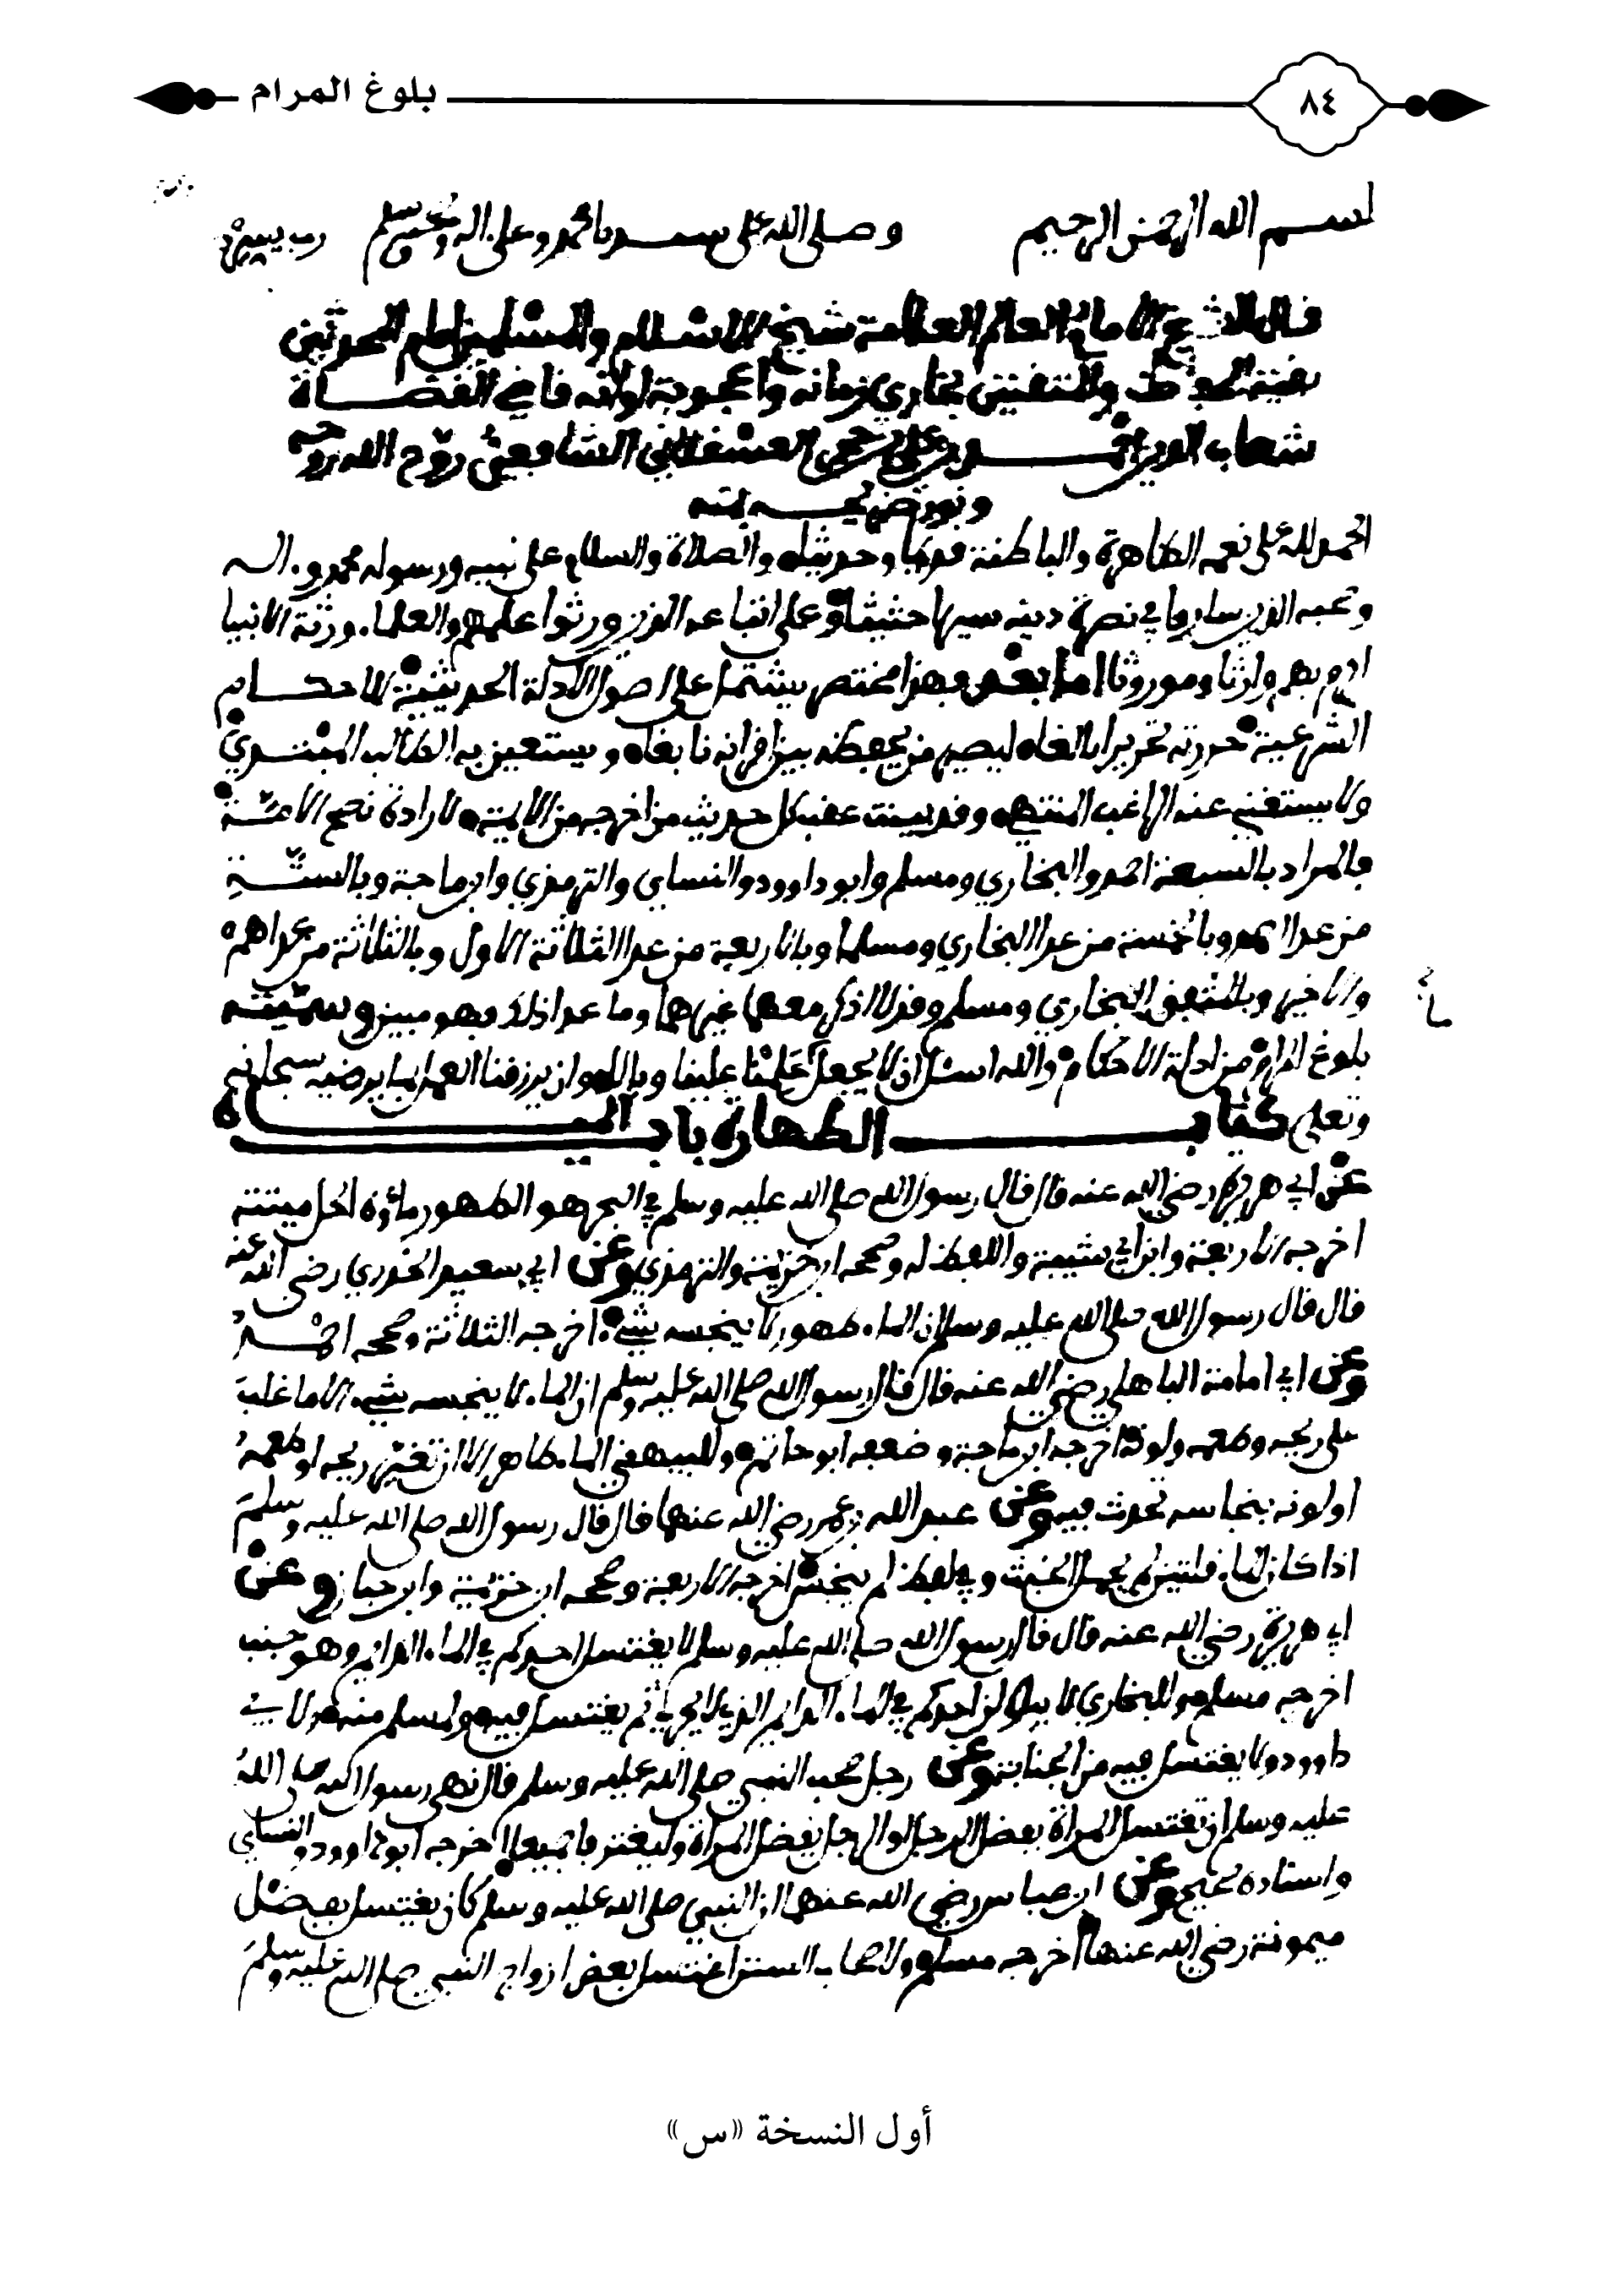 ٨٤
بلوغ المرام
بسم الله الرحمن الرحيم وصلى الله على سيدنا محمد وعلى اله وصحبه وسلم رب يسر
قال الشيخ الامام العالم العلامة شيخ الاسلام والمسلمين امام المحدثين
بقية الحفاظ والمتقنين بخاري زمانه واعجوبة اوانه قاضي القضاة
شهاب الدين احمد بن علي بن حجر العسقلاني الشافعي روح الله روحه
ونور ضريحه بمنه
الحمد لله على نعمه الظاهرة والباطنة قديما وحديثا والصلاة والسلام على نبيه ورسوله محمد واله
وصحبه الذين ساروا في نصرة دينه سيرا حثيثا وعلى اتباعه الذين ورثوا علمهم والعلماء ورثة الانبيا
اكرم بهم وارثا وموروثا اما بعد فهذا مختصر يشتمل على اصول الادلة الحديثية للاحكام
الشرعية حررته تحريرا بالغا ليصير من يحفظه بين اقرانه نابغا ويستعين به الطالب المبتدي
ولا يستغني عنه الراغب المنتهي وقد بينت عقب كل حديث من اخرجه من الائمة لارادة نصح الامة
فالمراد بالسبعة احمد والبخاري ومسلم وابو داوود والنساي والترمذي وابن ماجة وبالستة
من عدا احمد وبالخمسة من عدا البخاري ومسلما وبالاربعة من عدا الثلاثة الاول وبالثلاثة من عداهم
والاخير وبالمتفق البخاري ومسلم وقد لا اذكر معهما غيرهما وما عدا ذلك فهو مبين وسميته
بلوغ المرام من ادلة الاحكام والله اسئل ان لا يجعل علمنا علينا وبالا وان يرزقنا العمل بما يرضيه سبحانه
وتعلى كتاب الطهارة باب المياه
عن ابي هريرة رضي الله عنه قال قال رسول الله صلى الله عليه وسلم في البحر هو الطهور ماؤه الحل ميتته
اخرجه الاربعة وابن ابي شيبة واللفظ له وصححه ابن خزيمة والترمذي وعن ابي سعيد الخدري رضي الله عنه
قال قال رسول الله صلى الله عليه وسلم ان الماء طهور لا ينجسه شيء اخرجه الثلاثة وصححه احمد
وعن ابي امامة الباهلي رضي الله عنه قال قال رسول الله صلى الله عليه وسلم ان الماء لا ينجسه شيء الا ما غلب
على ريحه وطعمه ولونه اخرجه ابن ماجة وضعفه ابو حاتم وللبيهقي الماء طاهر الا ان تغير ريحه او طعمه
او لونه بنجاسه تحدث فيه وعن عبد الله بن عمر رضي الله عنهما قال قال رسول الله صلى الله عليه وسلم
اذا كان الماء قلتين لم يحمل الخبث وفي لفظ لم ينجس اخرجه الاربعة وصححه ابن خزيمة وابن حبان وعن
ابي هريرة رضي الله عنه قال قال رسول الله صلى الله عليه وسلم لا يغتسل احدكم في الماء الدايم وهو جنب
اخرجه مسلم وللبخاري لا يبولن احدكم في الماء الدايم الذي لا يجري ثم يغتسل فيه ولمسلم منه ولابي
داوود ولا يغتسل فيه من الجنابة وعن رجل صحب النبي صلى الله عليه وسلم قال نهى رسول الله صلى الله
عليه وسلم ان تغتسل المراة بفضل الرجل او الرجل بفضل المراة وليغترفا جميعا اخرجه ابو داوود والنساي
واسناده صحيح وعن ابن عباس رضي الله عنهما ان النبي صلى الله عليه وسلم كان يغتسل بفضل
ميمونة رضي الله عنها اخرجه مسلم ولاصحاب السنن اغتسل بعض ازواج النبي صلى الله عليه وسلم
أول النسخة «س»